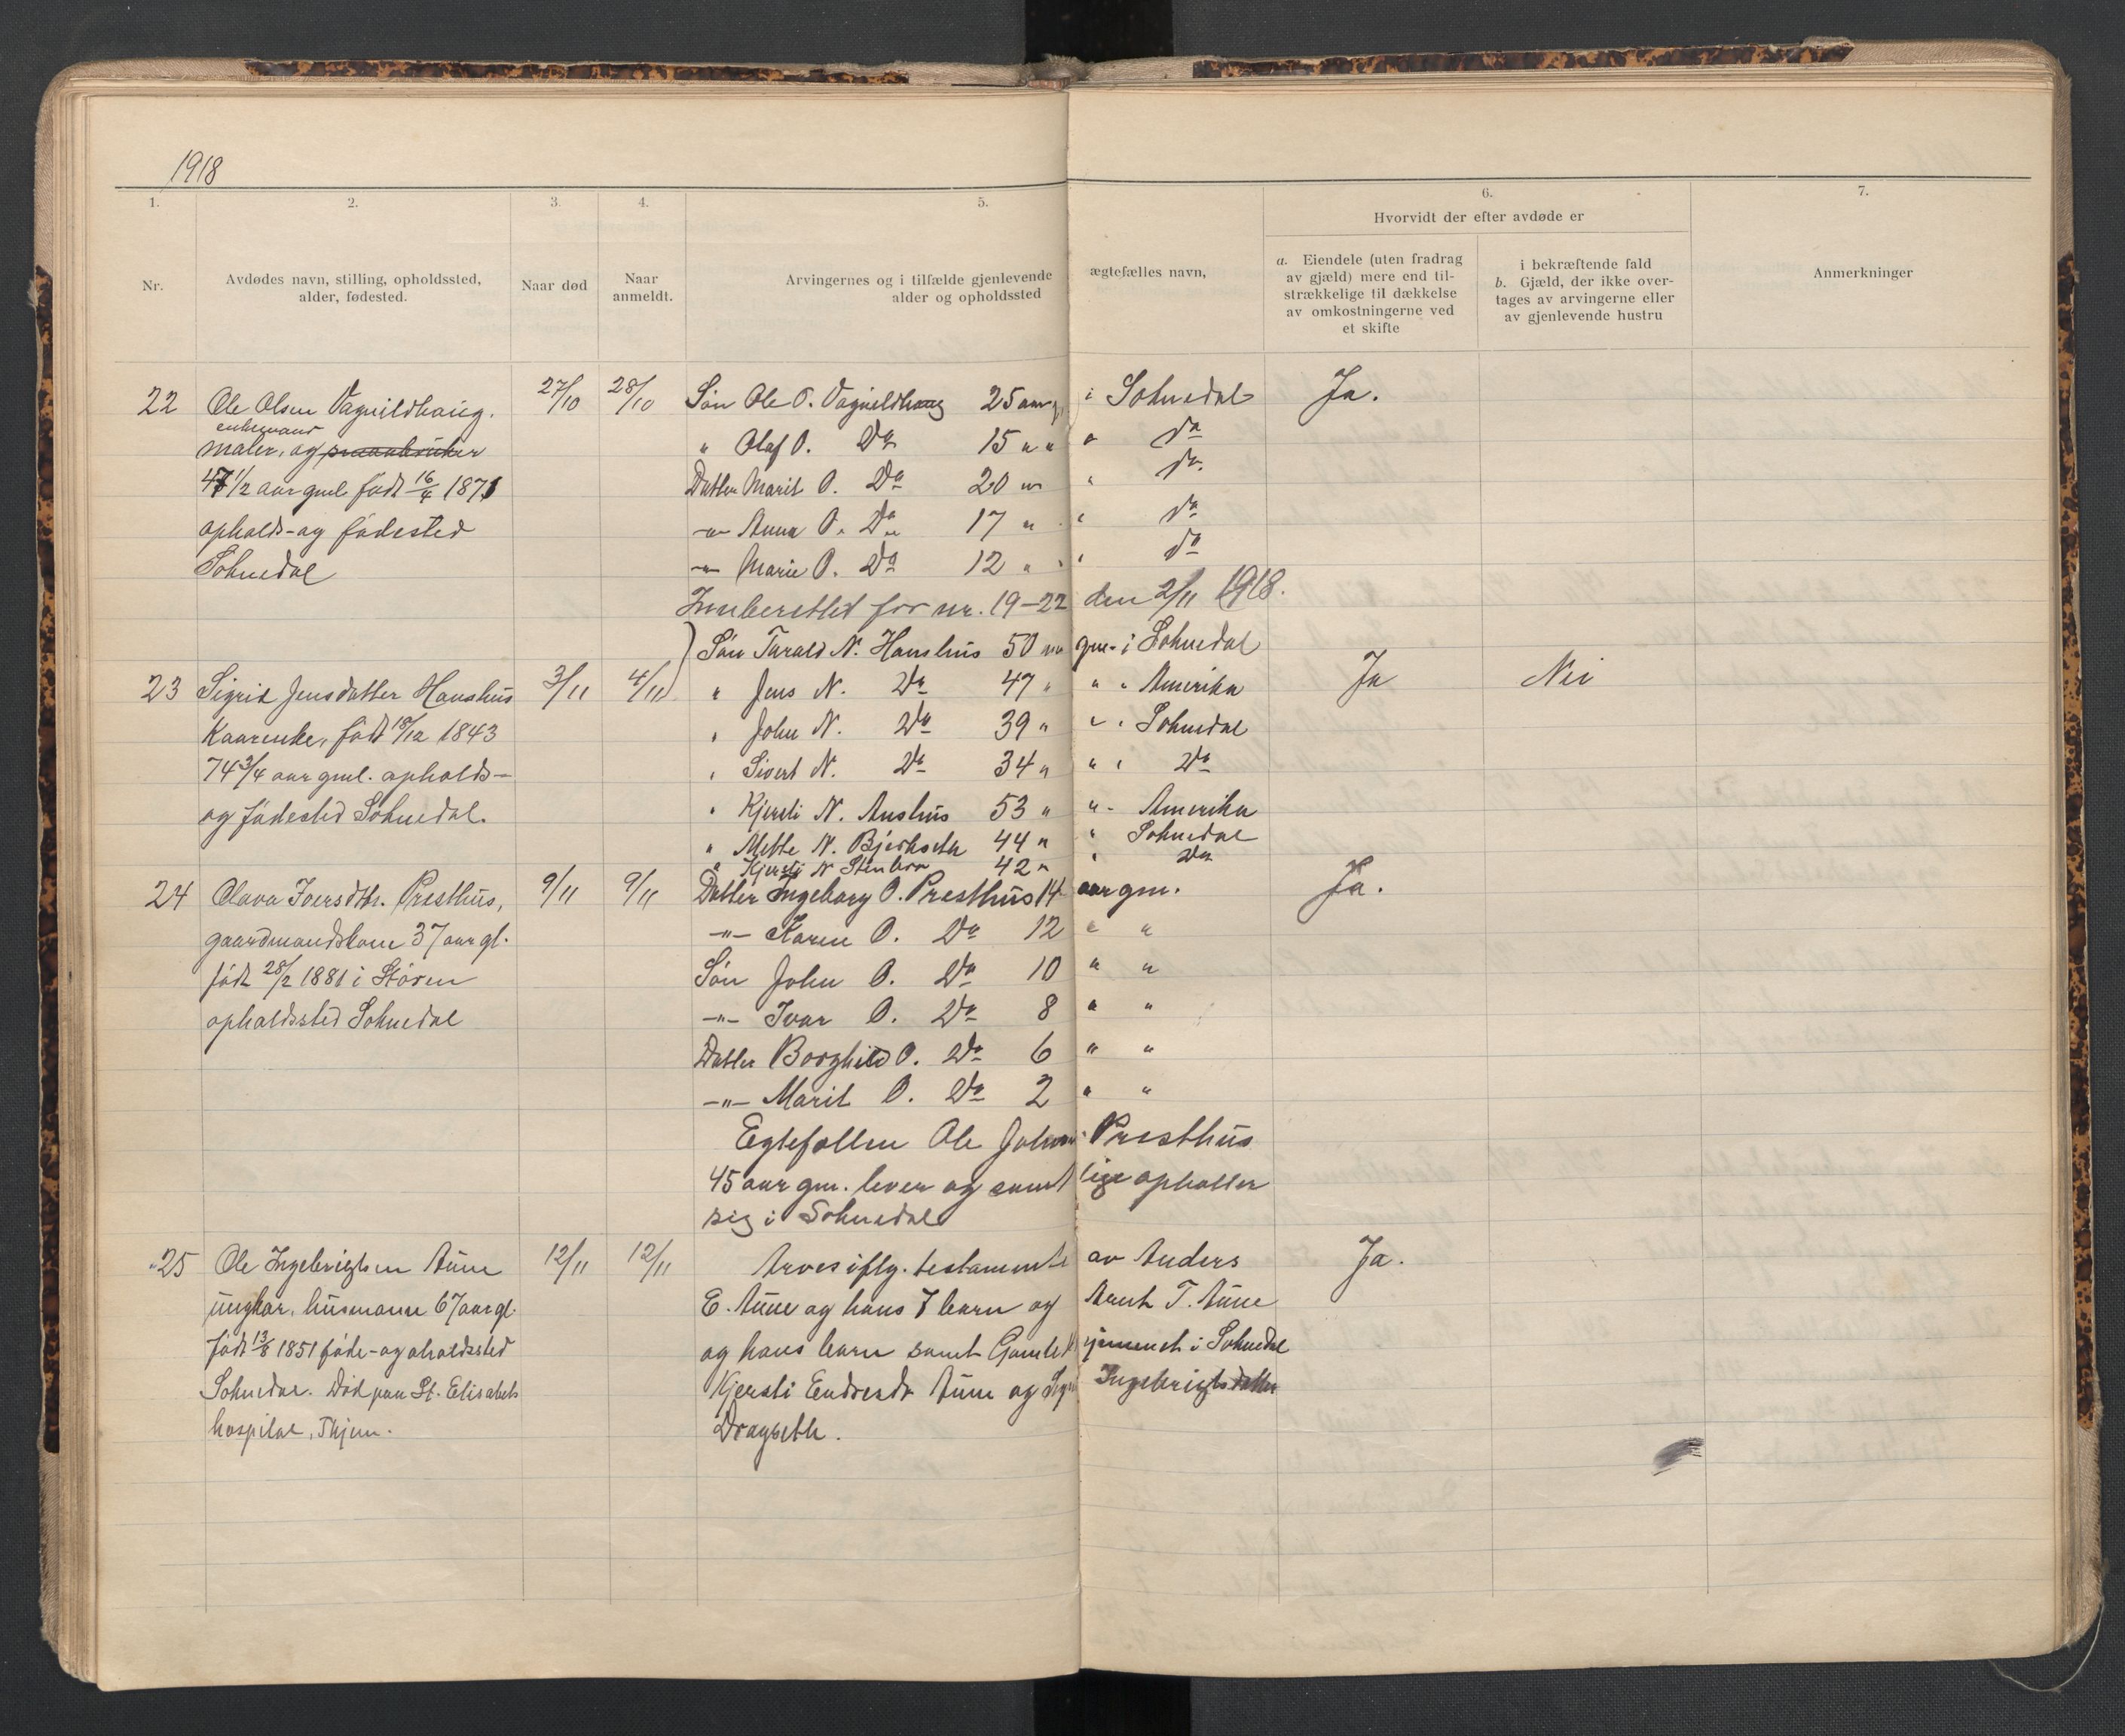 1918
1. 2. 3. 4. 5. 6. 7.
Hvorvidt der efter avdøde er
Nr.
Avdødes navn, stilling, opholdssted,
alder, fødested.
Naar død
Naar
anmeldt.
Arvingernes og i tilfælde gjenlevende ægtefælles navn,
alder og opholdssted
a. Eiendele (uten fradrag
av gjæld) mere end til-
strækkelige til dækkelse
av omkostningerne ved
et skifte
i bekræftende fald
b. Gjæld, der ikke over-
tages av arvingerne eller
av gjenlevende hustru
Anmerkninger
22 Ole Olsen Vagnildhaug. 27/10 28/10 Søn Ole O. Vagnildhaug 25 aar g. i Soknedal Ja.
enkemand
maler, og smaabruker " Olaf O. Do 15 " " " do
47 1/2 aar gml. født 16/4 1871 Datter Marit O. Do 20 " " do
opholds- og fødested -"- Anna O. Do 17 " " do
Soknedal -"- Marie O. Do 12 " " do
Innberettet for nr. 19-22 den 2/11 1918.
Søn Tarald N. Hanshus 50 aar gm. i Soknedal
23 Sigrid Jensdatter Hanshus 3/11 4/11 " Jens N. Do 47 " " " Amerika Ja Nei
Kaarenke, født 18/12 1843 " John N. Do 39 " " " Soknedal
74 3/4 aar gml. opholds- " Sivert N. Do 34 " " " Do
og fødested Soknedal. " Kjersti N. Aushus 53 " " " Amerika
" Mette N. Bjerkseth 44 " " Soknedal
" Kjersti N. Stenbro 42 " " Do
24 Olava Iversdtr. Presthus, 9/11 9/11 Datter Ingeborg O. Presthus 14 aar gm. Ja.
gaardmandskone 37 aar gl. -"- Karen O. Do 12 " "
født 28/2 1881 i Støren Søn John O. Do 10 " "
opholdssted Soknedal -"- Ivar O. Do 8 " "
Datter Borghild O. Do 6 " "
-"- Marit O. Do 2 " "
Egtefellen Ole Johnsen Presthus
45 aar gm. lever og samtlige opholder
sig i Soknedal
25 Ole Ingebrigtsen Aune 12/11 12/11 Arves iflg. testamente av Anders Ja.
ungkar, husmann 67 aar gl. E. Aune og hans 7 barn og Arnt T. Aune
født 13/8 1851 føde- og oholdssted og hans barn samt Gamlehjemmet i Soknedal
Soknedal. Død paa St. Elisabeth Kjersti Endresdr Aune og Ingebrigtsdatter
hospital, Thjem. Dragseth.